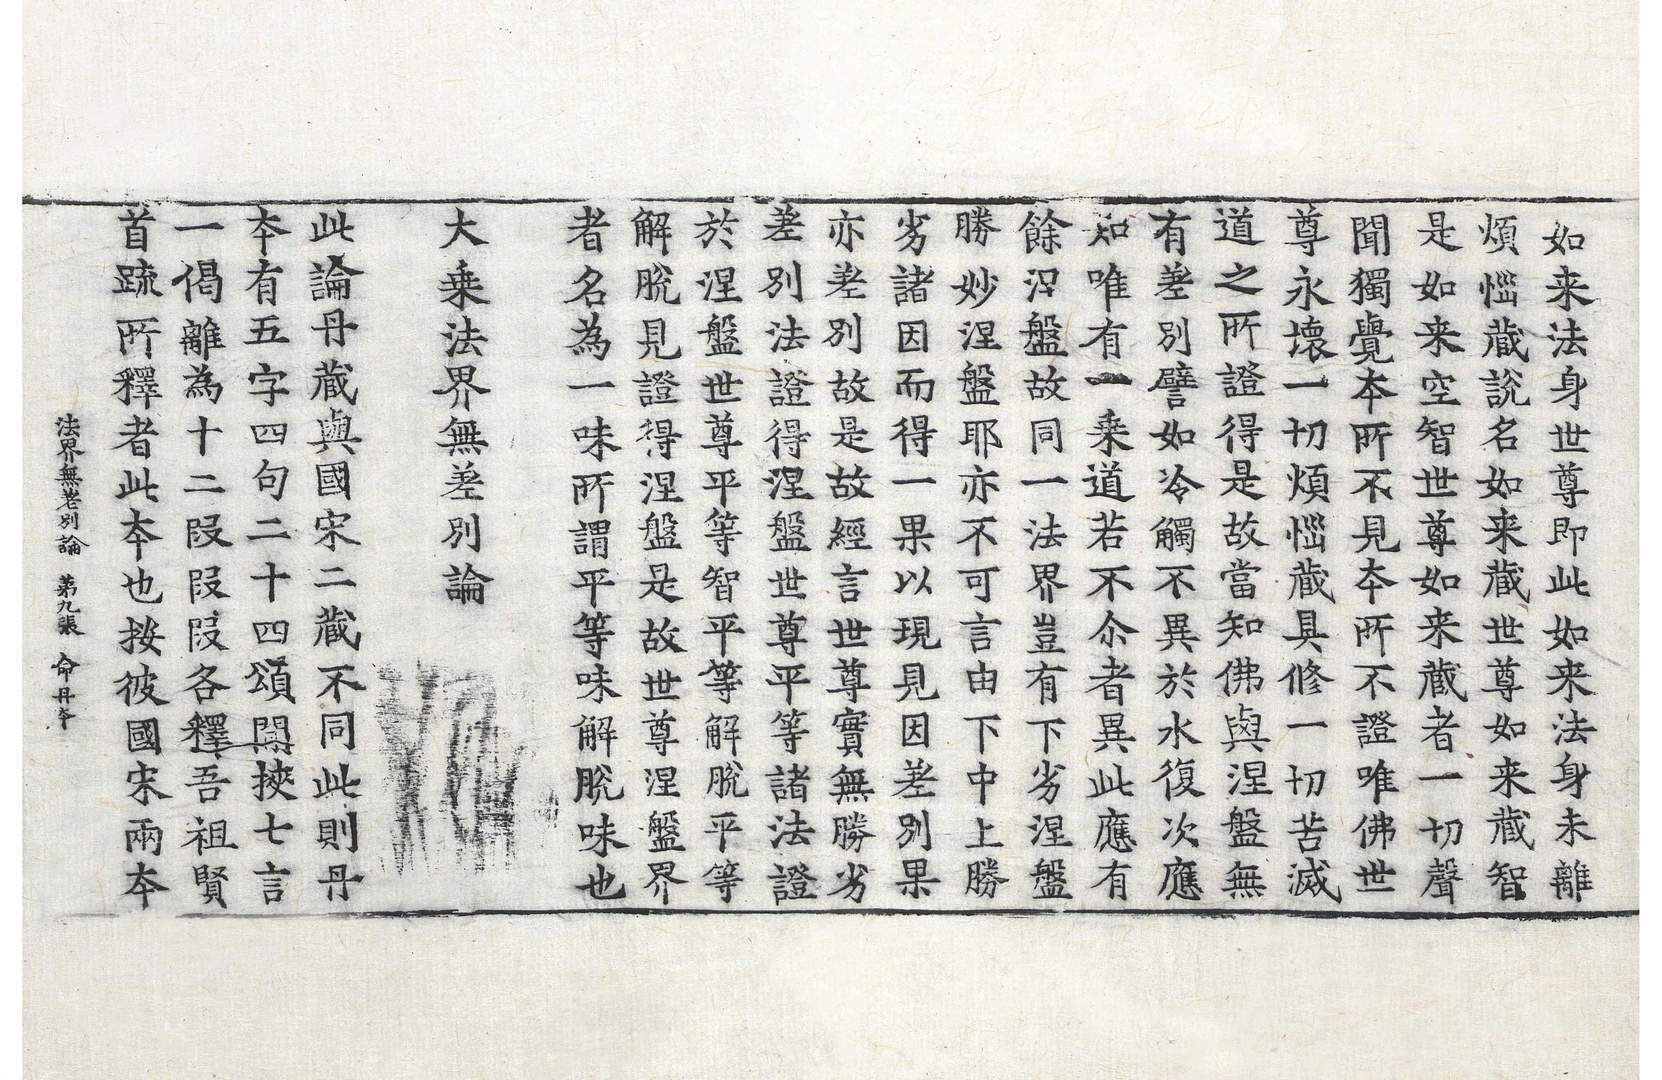 如来法身世尊即此如来法身未離
煩惱藏說名如来藏世尊如来藏智
是如来空智世尊如来藏者一切聲
聞獨覺夲所不見夲所不證唯佛世
尊永壞一切煩惱藏具修一切苦滅
道之所證得是故當知佛與涅盤無
有差別譬如冷觸不異於水復次應
知唯有一乗道若不尒者異此應有
餘涅盤故同一法界豈有下劣涅盤
勝妙涅盤耶亦不可言由下中上勝
劣諸因而得一果以現見因差別果
亦差別故是故經言世尊實無勝劣
差別法證得涅盤世尊平等諸法證
於涅盤世尊平等智平等解脫平等
解脫見證得涅盤是故世尊涅盤界
者名為一味所謂平等味解脫味也
大乗法界無差別論
此論丹藏與國宋二藏不同此則丹
夲有五字四句二十四頌間挾七言
一偈離為十二段段段各釋吾祖賢
首疏所釋者此夲也按彼國宋兩夲
法界無差別論 第九張 命 丹夲